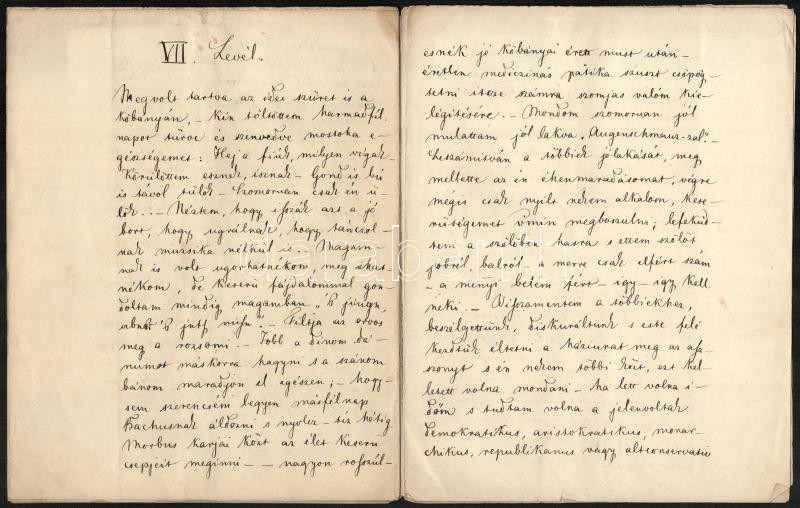 VII. Levél.
Megvolt tartva az idei szüret is a
kőbányán. – Kin töltöttem harmadfél
napot tűrve és szenvedve mostoha e-
gészségemet: Hej a fiúk, milyen vígak
Körülöttem esznek, isznak – Gond is bú
is távol tülök – Szomoruan csak én ü-
lök... – Néztem, hogy isszák azt a jó
bort, hogy ugrálnak, hogy tánczol-
nak muzsika nélkül is. – Magam-
nak is volt ugorhatnékom, meg ihat-
nékom, de keserü fájdalommal gon-
doltam mindig magamban
– Tiltja az orvos
meg a rozsomi. – Több a dinom dá-
numot máskorra hagyni s a szánom
bánom maradjon el egészen; – hogy-
sem szerencsém legyen másfélnap
Bachusnak áldozni s nyolcz – tíz hétig
Morbus karjai közt az élet keserü
csepjeit meginni – – nagyon rosszúl-
esnék jó kőbányai érett must után –
éretlen mediczinás pátika szuszt csöpög-
tetni itcze számra szomjas valóm kie-
légítésére. – Mondom szomoruan jól
mulattam jól lakva „Augenschmaus-zal".–
Leszámitván a többiek jólakását, meg
mellette az én éhenmaradásomat, végre
mégis csak nyilt nekem alkalom, kese-
rüségemet megboszulni; lefeküd-
tem a szőlőben hasra s ettem szőlőt
jobról balról a merre csak elfért szám
– a menyi belém fért – így – így kell
neki. – Visszamentem a többiekhez,
beszélgettünk, diskuráltunk s este felé
kezdtük éltetni a háziurat meg az asz-
szonyt s én nekem többi közt, ezt kel-
letett volna mondani – ha lett volna i-
dőm s tudtam volna a jelenvoltak
demokratikus, aristokratikus, monar-
chikus, republikanus vagy altconservativ
darabanth